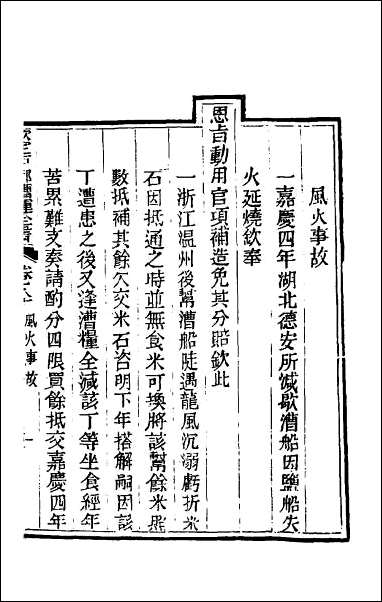 風火事故
一嘉慶四年湖北德安所減歇漕船因鹽船失
火延燒欽奉
恩旨動用官項補造免其分賠欽此
一浙江温州後幫漕船陡遇龍風沉溺虧折米
石因抵通之時並無食米可換將該幫餘米盡
數抵補其餘欠交米石咨明下年搭解嗣因該
丁遭患之後又逢漕糧全減該丁等坐食經年
苦累難支奏請酌分四限買餘抵交嘉慶四年
風火事故